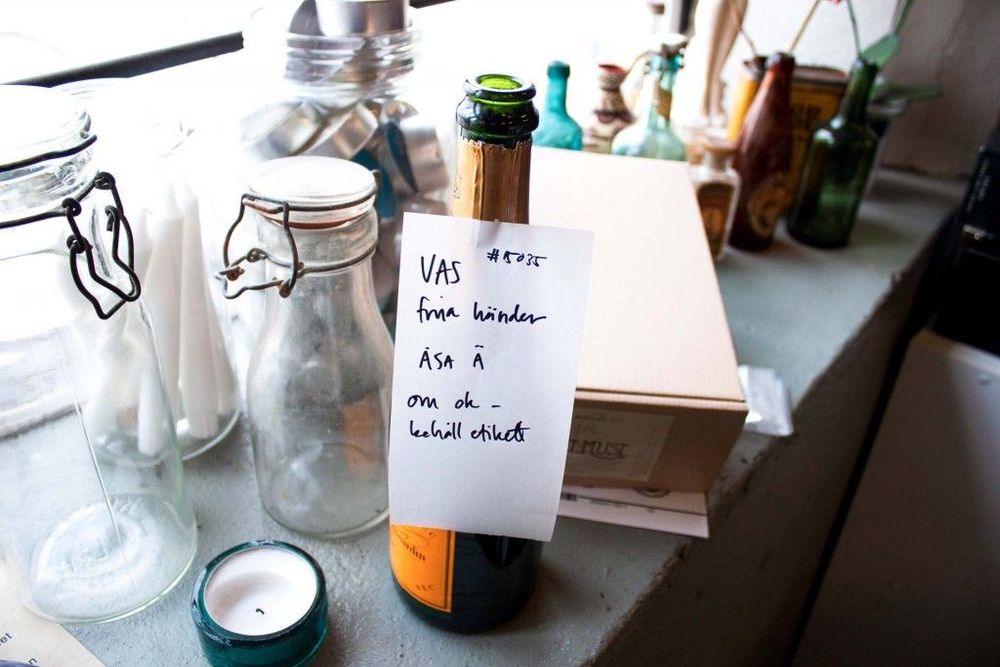 VAS #15035
fria händer
ÅSA Ä
om ok -
behåll etikett
MUST